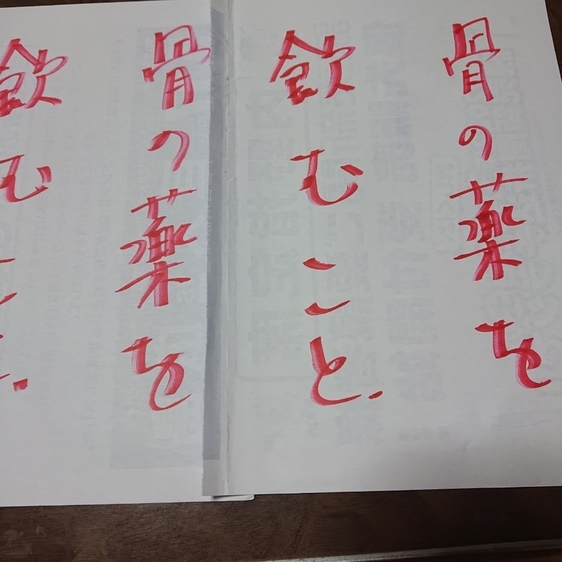 骨の薬を
飲むこと.
骨の薬を
飲むこと.